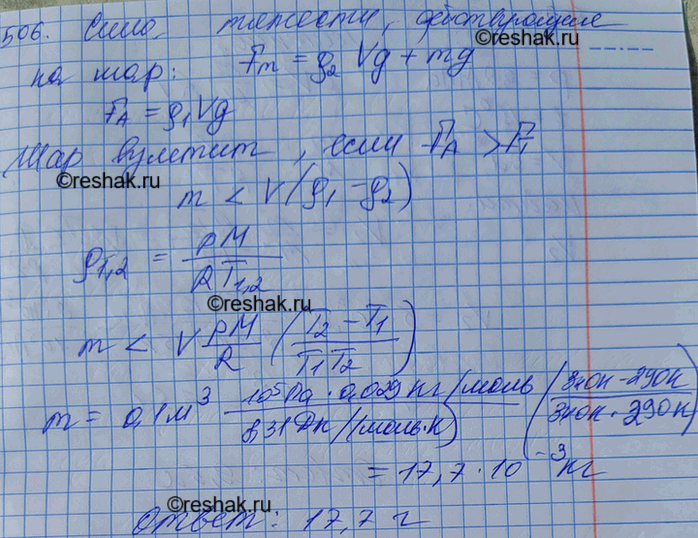 506. Сила тяжести, действующие
на шар: Fт = ρ₂Vg + mg
F_A = ρ₁Vg
Шар взлетит, если F_A > F₁
©reshak.ru
m < V(ρ₁ − ρ₂)
ρ₁,₂ = pM / RT₁,₂
©reshak.ru
m < V pM/R (T₂ − T₁ / T₁T₂)
m = 0,1м³ 10⁵Па · 0,029 кг/моль / 8,31 Дж/(моль·К) (340К − 290К / 340К · 290К)
= 17,7 · 10⁻³ кг
©reshak.ru
Ответ: 17,7 г